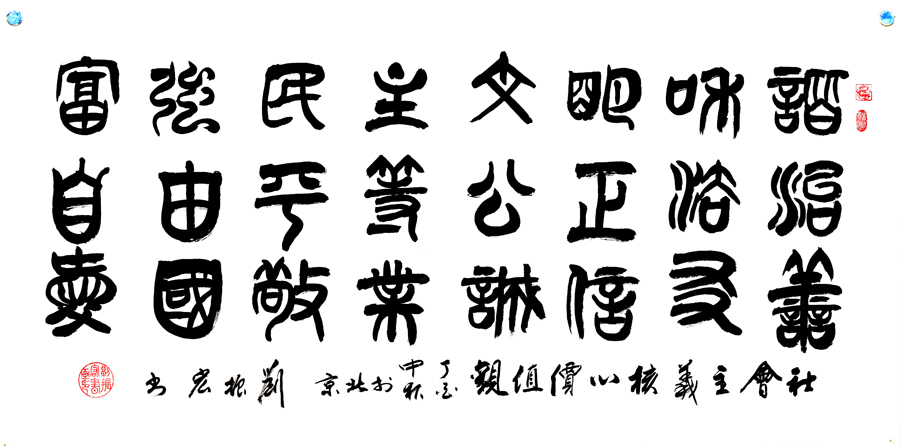 富強民主文明和諧
自由平等公正法治
愛國敬業誠信友善
社會主義核心價值觀 丁酉中秋於北京 劉振宏書